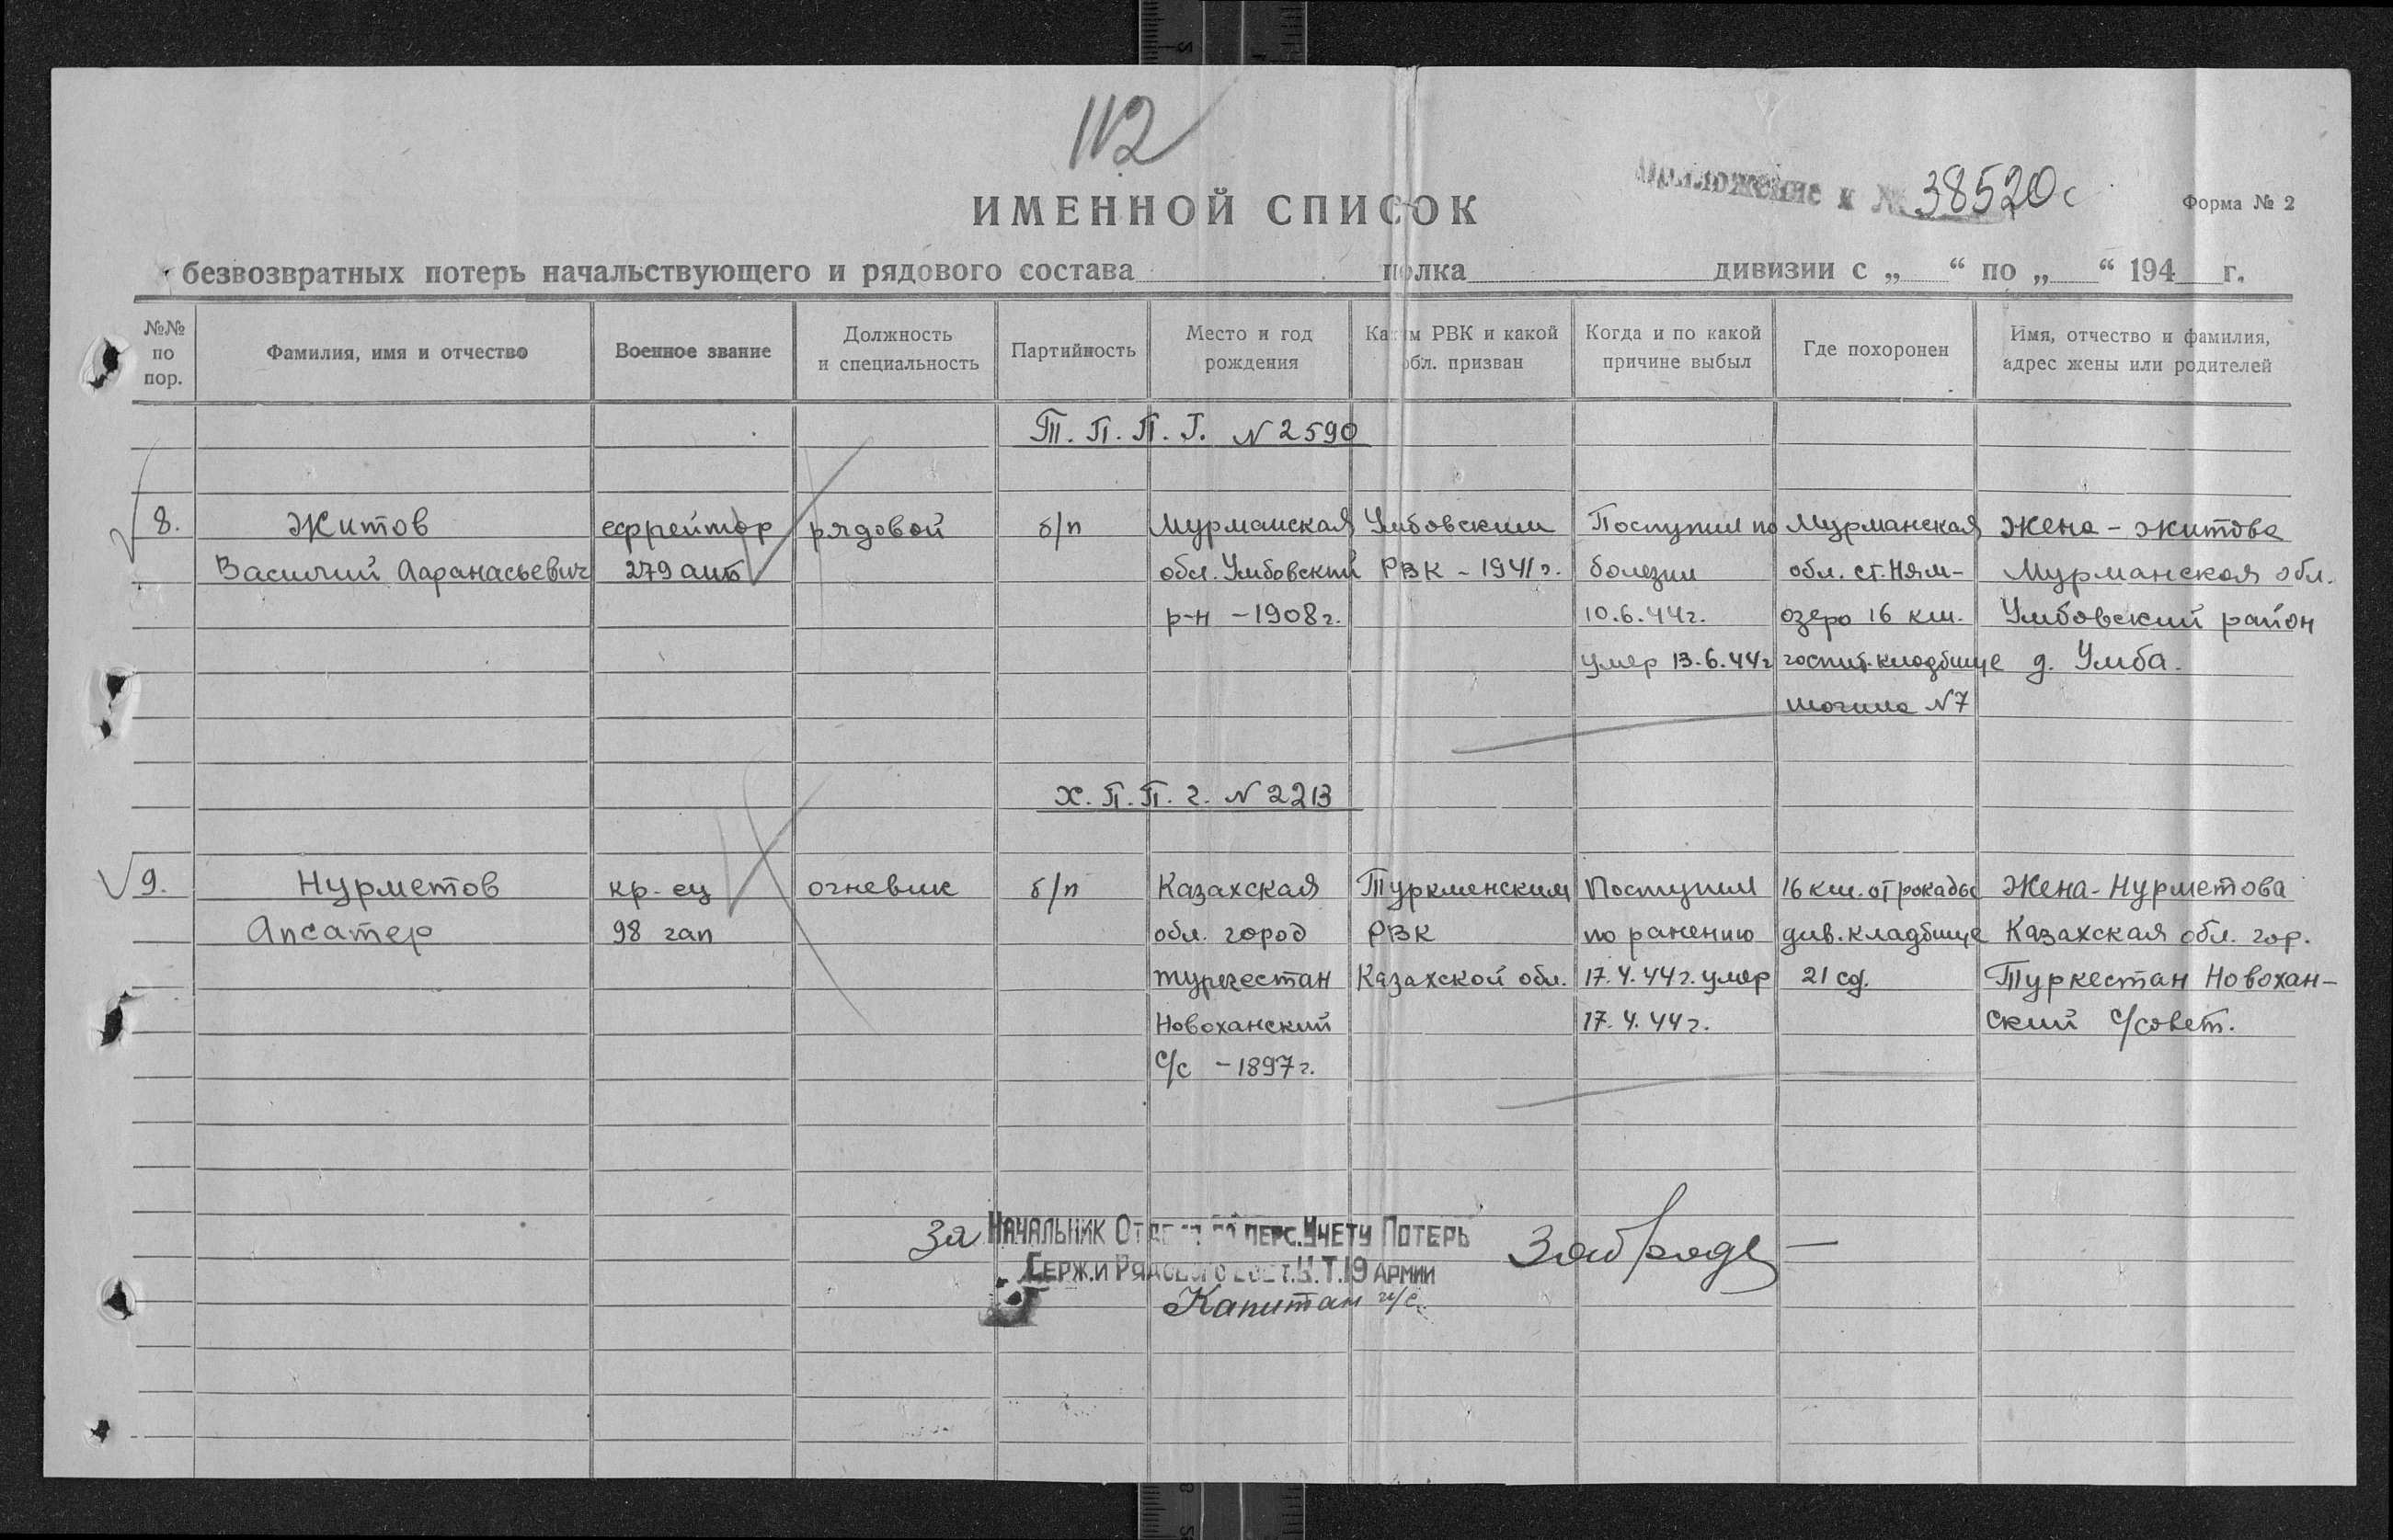 112
ИМЕННОЙ СПИСОК
Приложение к № 38520с
Форма № 2
безвозвратных потерь начальствующего и рядового состава полка дивизии с „ “ по „ “ 194 г.
№№ по пор.
Фамилия, имя и отчество
Военное звание
Должность и специальность
Партийность
Место и год рождения
Каким РВК и какой обл. призван
Когда и по какой причине выбыл
Где похоронен
Имя, отчество и фамилия, адрес жены или родителей
Т.П.П.Г. N 2590
8. Житов ефрейтор рядовой б/п Мурманская Умбовским Поступил по Мурманская Жена - Житова
Василий Афанасьевич 279 аиб обл. Умбовский РВК - 1941г. болезни обл. ст. Ням- Мурманская обл.
р-н - 1908г. 10.6.44г. озеро 16 км. Умбовский район
умер 13.6.44г госпит. кладбище д. Умба.
могила N7
Х.П.П.г. N 2213
9. Нурметов кр-ец огневик б/п Казахская Туркменским Поступил 16 км. от рокады Жена - Нурметова
Апсатер 98 гап обл. город РВК по ранению див. кладбище Казахская обл. гор.
Туркестан Казахской обл. 17.4.44г. умер 21 сд. Туркестан Новохан-
Новоханский 17.4.44г. ский с/совет.
с/с - 1897г.
За Начальник Отдела по перс. Учету Потерь
Серж. и Рядового Сост. У.Т. 19 Армии
Капитан и/с